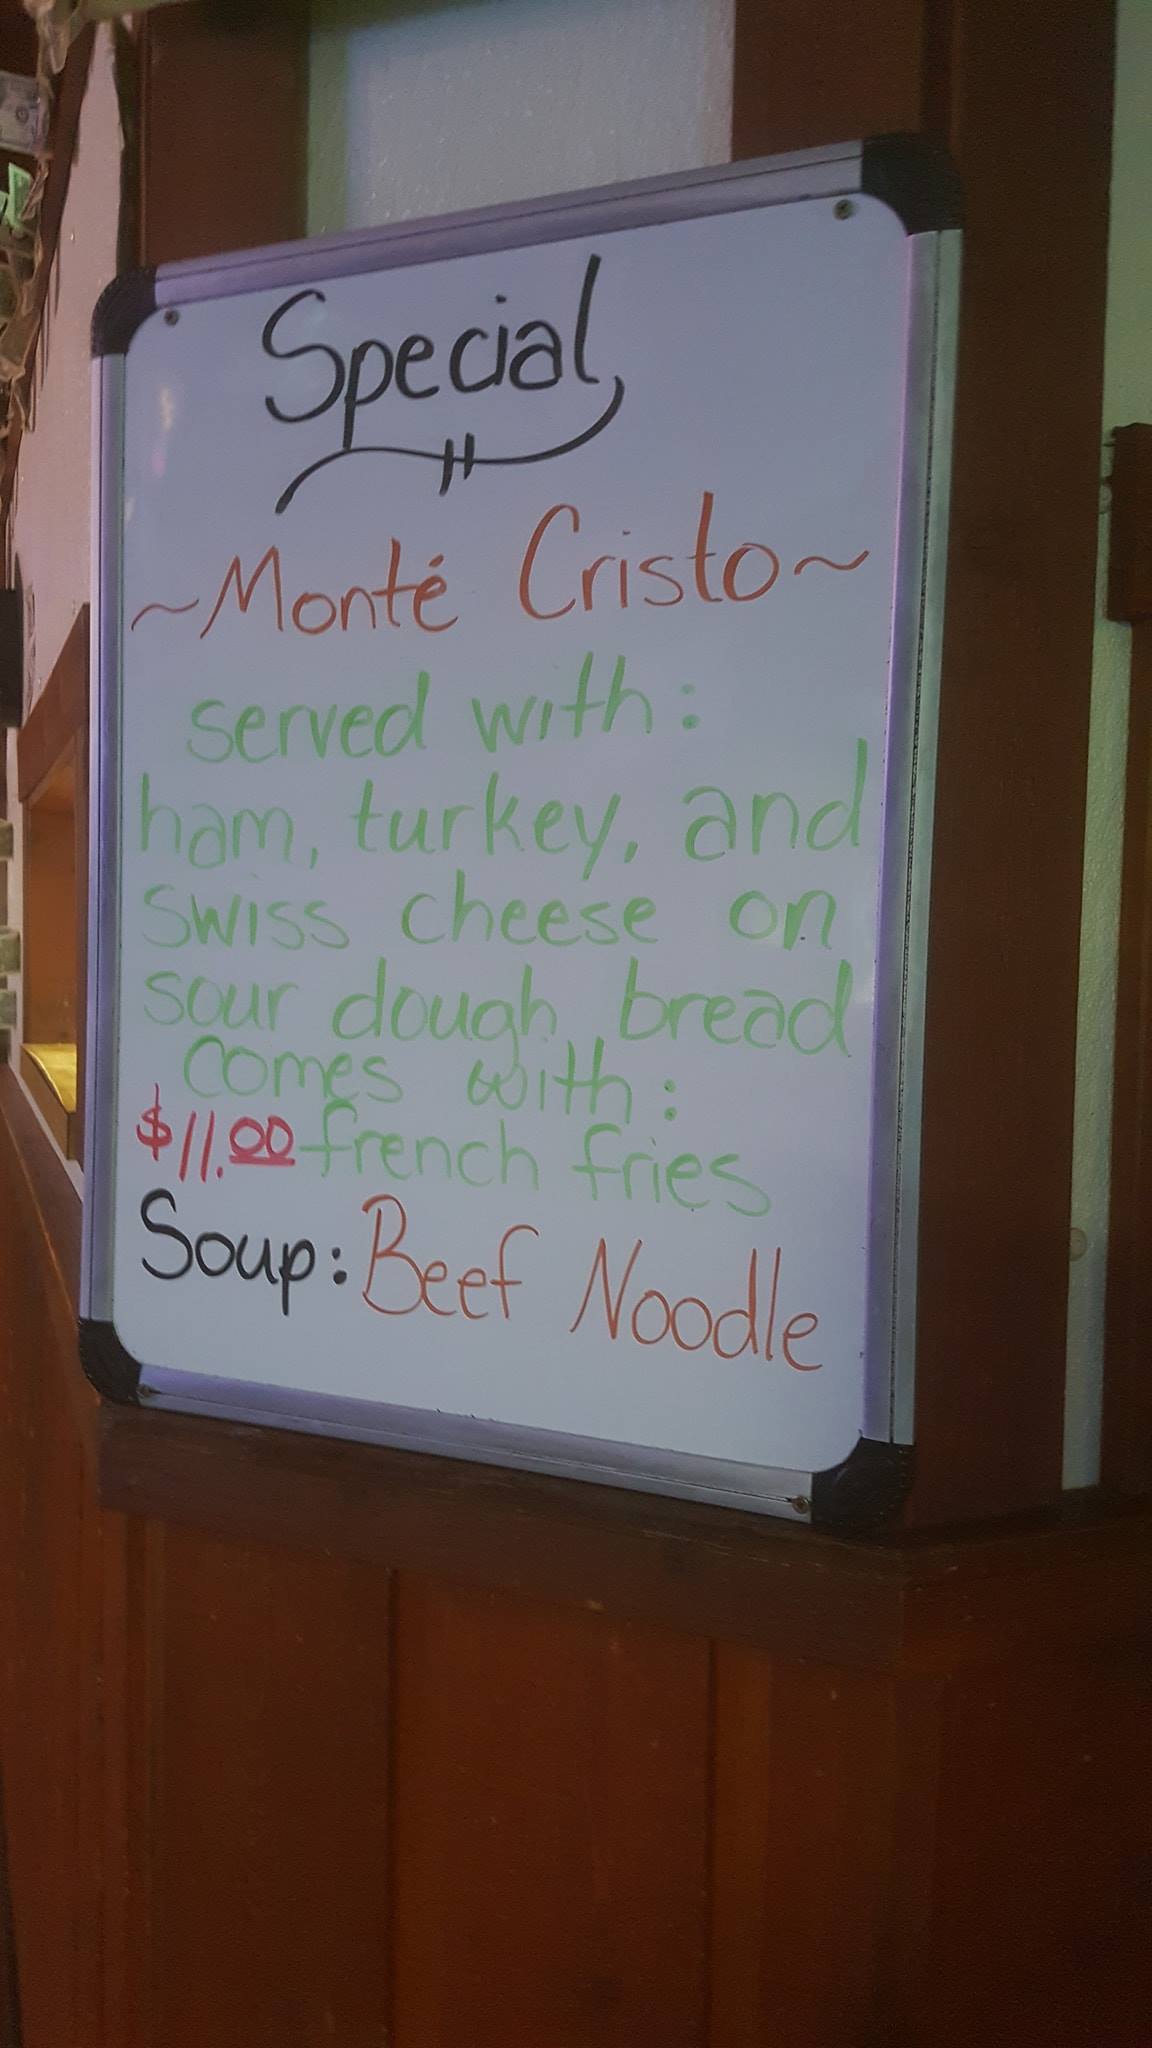 Special
~Monté Cristo~
served with:
ham, turkey, and
swiss cheese on
sour dough bread
comes with:
$11.00 french fries
Soup: Beef Noodle